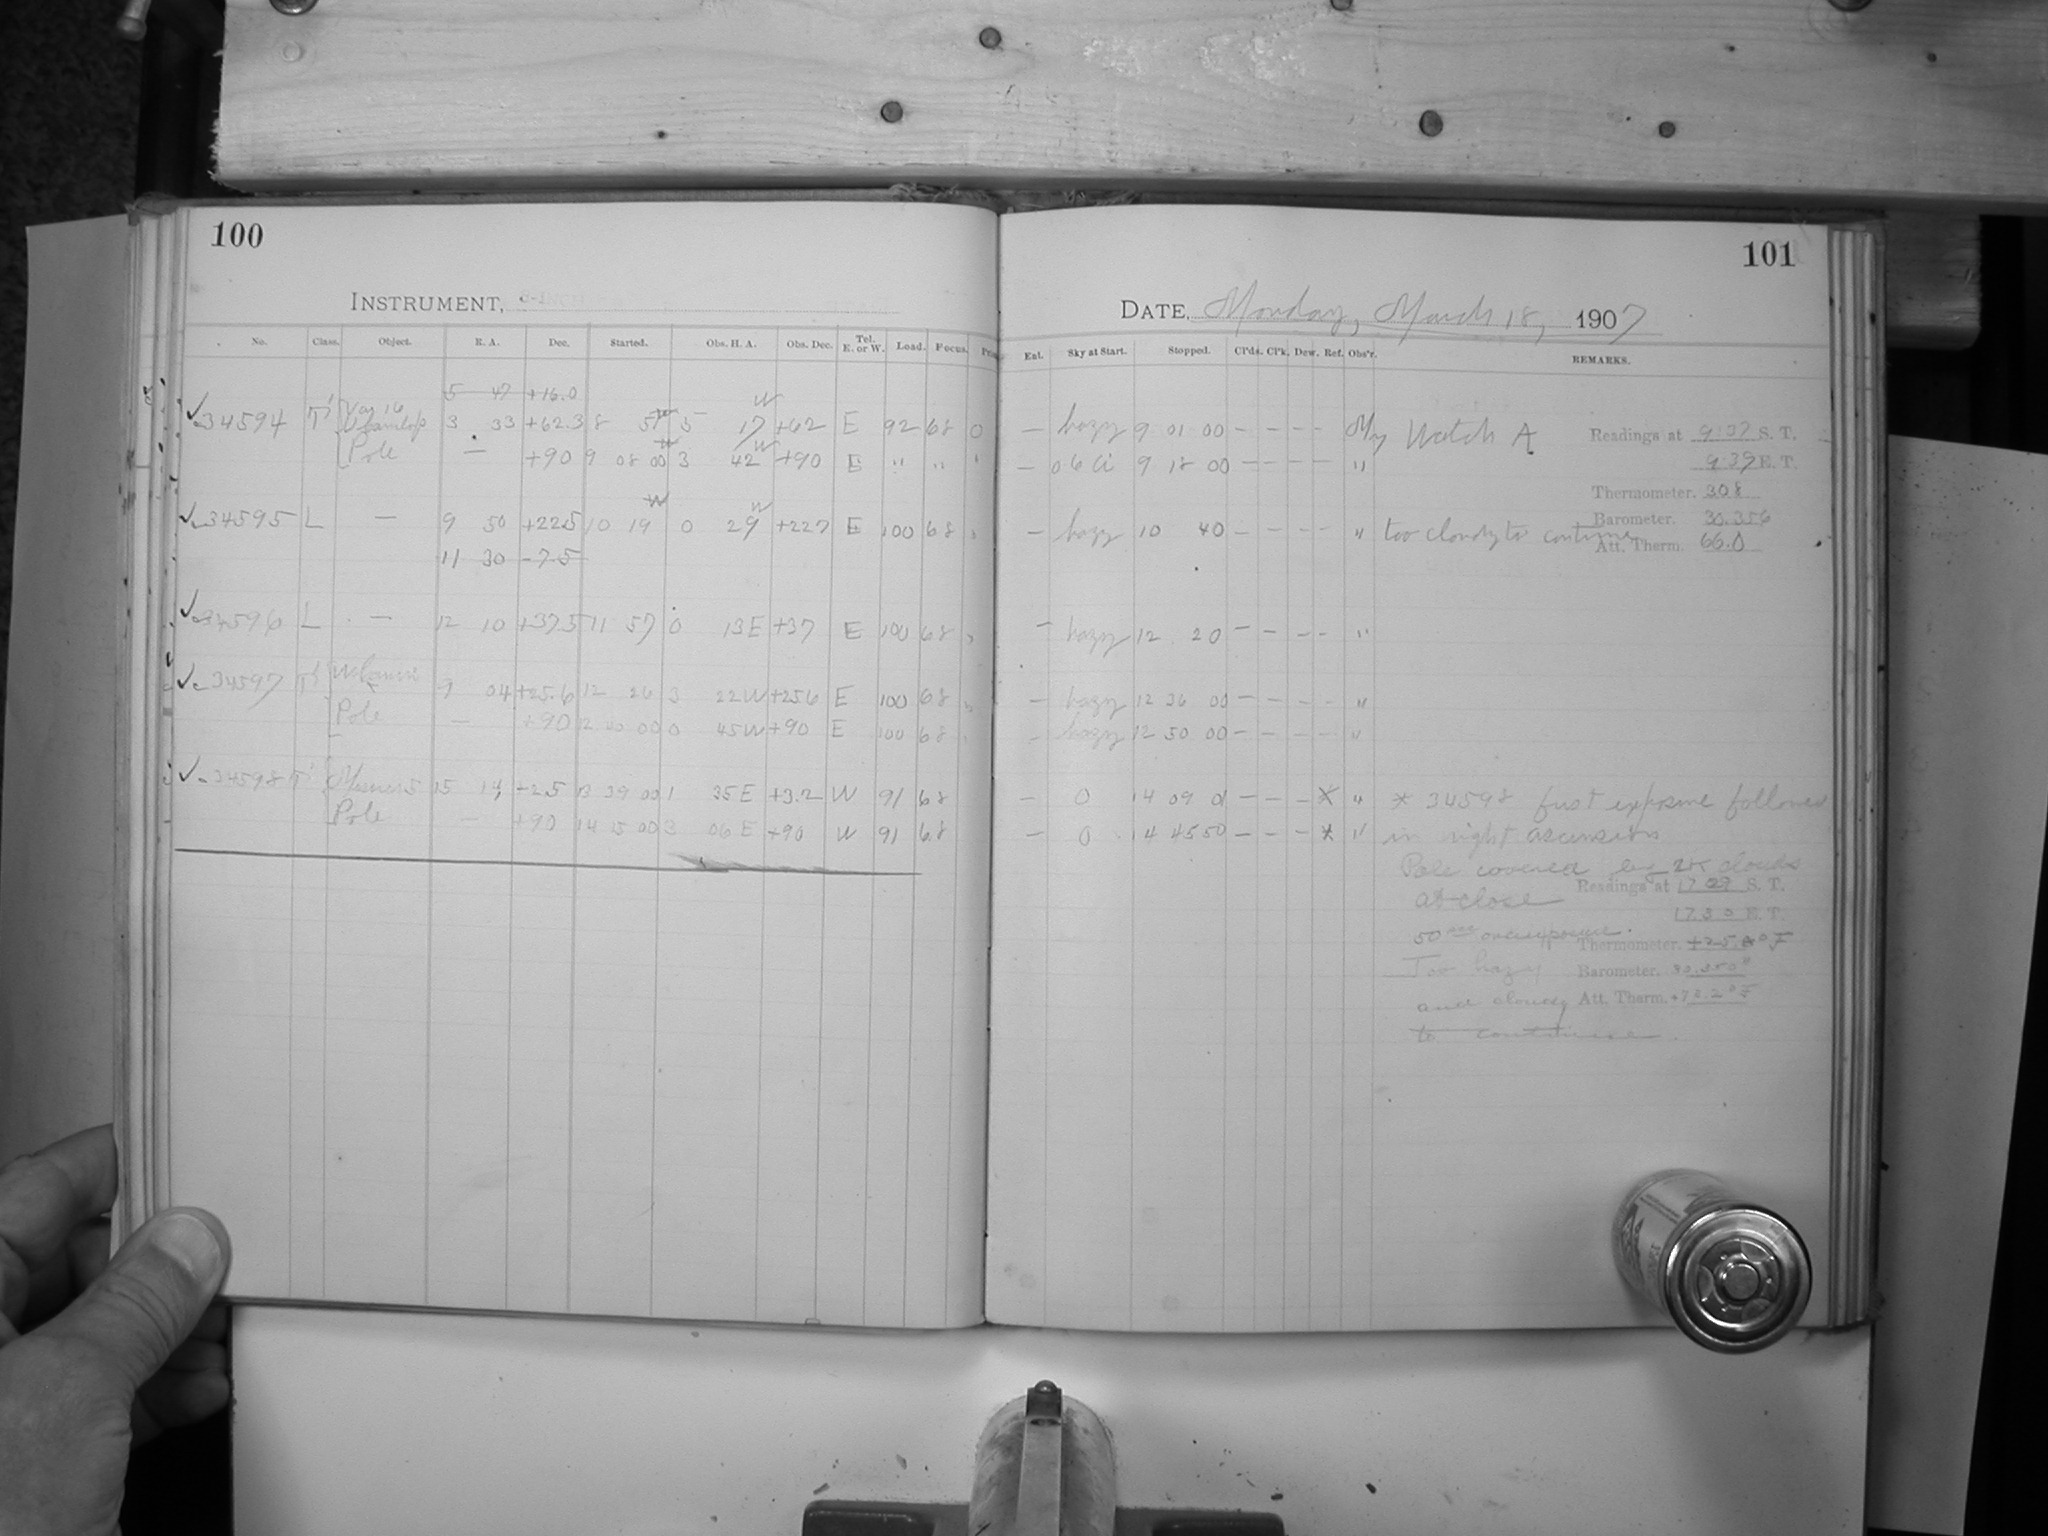 100
101
INSTRUMENT,
DATE, Monday, March 18, 1907
No. Class. Object. R. A. Dec. Started. Obs. H. A. Obs. Dec. Tel. E. or W. Load. Focus.
Ent. Sky at Start. Stopped. Cl'ds. Cl'k. Dew. Ref. Obs'r. REMARKS.
5 47 +16.0
34594 3 33 +62.3 8 5 17 +62 E 92 68 0 — hazy 9 01 00 — — — — Watch A
Readings at 9:37 S. T.
Pole — +90 9 08 00 3 42 +90 E " " — 9 18 00 — — — — "
9:39 E. T.
Thermometer. 30.8
Barometer. 30.356
Att. Therm. 66.0
34595 L — 9 50 +22.5 10 19 0 29 W +22.7 E 100 68 — hazy 10 40 — — — — " too cloudy to continue
11 30 -7.5
34596 L — 12 10 +37.5 11 57 0 13 E +37 E 100 68 — hazy 12 20 — — — — "
34597 04 +25.6 12 26 3 22 W +25.6 E 100 68 — hazy 12 36 00 — — — — "
Pole — +90 12 40 00 0 45 W +90 E 100 68 — hazy 12 50 00 — — — — "
34598 15 14 +2.5 13 39 00 1 35 E +3.2 W 91 68 — 0 14 09 01 — — — * " * 34598 first exposure followed
Pole — +90 14 15 00 3 06 E +90 W 91 68 — 0 14 45 50 — — — * " in right ascension
Pole covered by clouds
at close
Readings at 17 29 S. T.
17 30 E. T.
50 sec overexposure.
Thermometer.
Too hazy
Barometer.
and cloudy
Att. Therm.
to continue